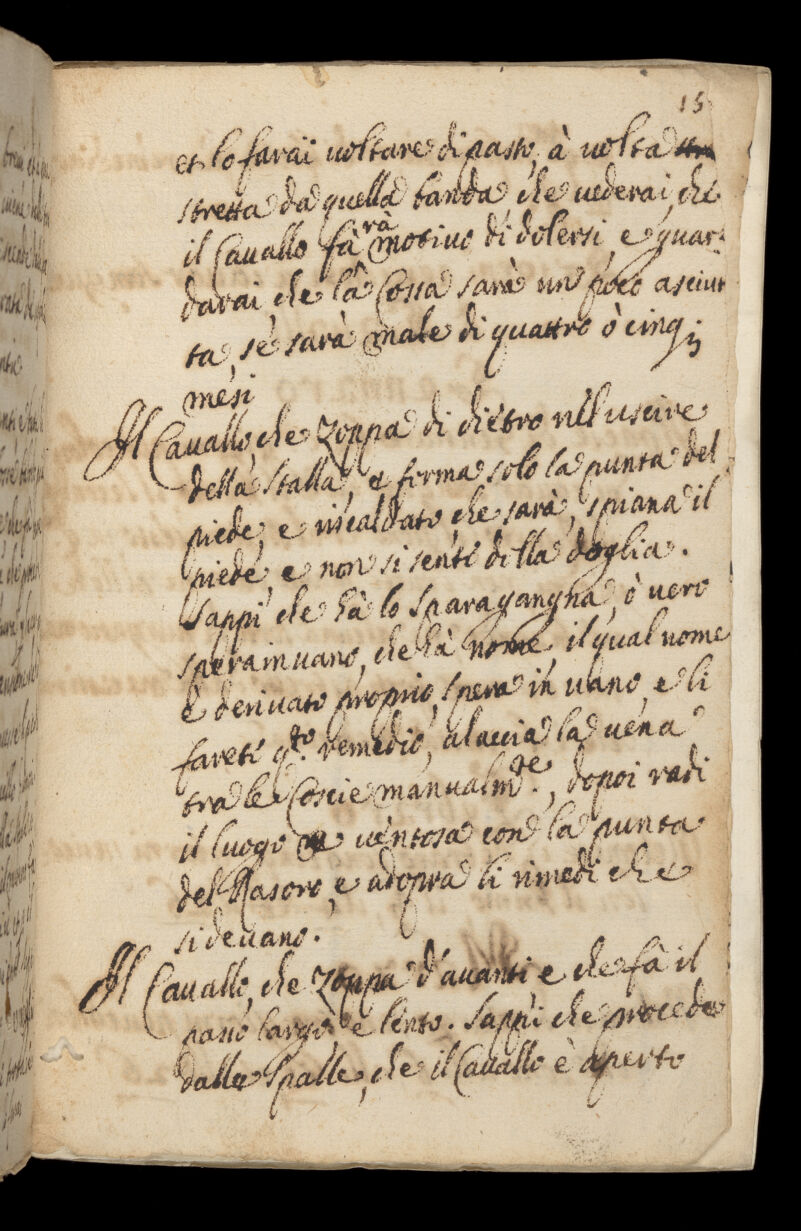 15
et lo farai uoltare di passo, à uolta
stretta da quella banda che uederai, che
il Cauallo fàrà motiuo di dolersi, e guar:
darai che la Cossa sarà un poco asciut
ta, se sarà male di quattro ò cinq;
mesi
Il Cauallo, che Zoppa di dietro nell uscire
della stalla, e ferma solo la punta del
piede, e riscaldato che sarà, spiana il
piede, e non si senti della doglia.
Sappi che hà lo sparagangna, ò uero
sperainuano, che hà nome il qual nome
è deriuato proprio, spera in uano, e li
fareti q.to remedio, alaccia la uena
tra le Coscie manualm.te, dopoi radi
il luogo e uentosa con la punta
del Rasoro, e adopra li rimedi che
si deuano.
Il Cauallo, che Zoppa d'auanti e che fà il
passo largo, e lento. Sappi che procede
dalle spalle, che il Cauallo è aperto